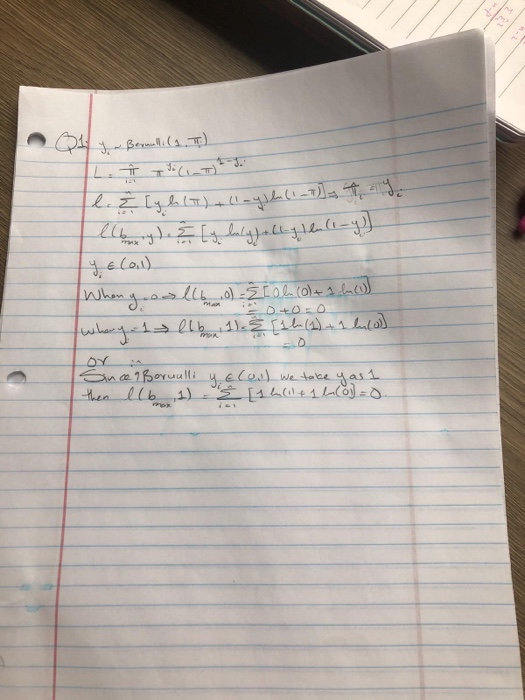 Q1: yᵢ ~ Bernulli(1, π)
L = π̂ᵢ₌₁ π^yᵢ (1-π)^1-yᵢ
l = Σᵢ₌₁ [yᵢ ln(π) + (1-y) ln(1-π)] ⇒ π̂ᵢ = yᵢ
l(b_max, y) = Σᵢ₌₁ [yᵢ ln(y) + (1-yᵢ) ln(1-y)]
yᵢ ∈ (0,1)
When yᵢ = 0 ⇒ l(b_max, 0) = Σᵢ₌₁ [0 ln(0) + 1 ln(1)]
= 0 + 0 = 0
when y = 1 ⇒ l(b_max, 1) = Σᵢ₌₁ [1 ln(1) + 1 ln(0)]
= 0
or in
Since Boruulli yᵢ ∈ (0,1) we take y as 1
then l(b_max, 1) = Σᵢ₌₁ [1 ln(1) + 1 ln(0)] = 0